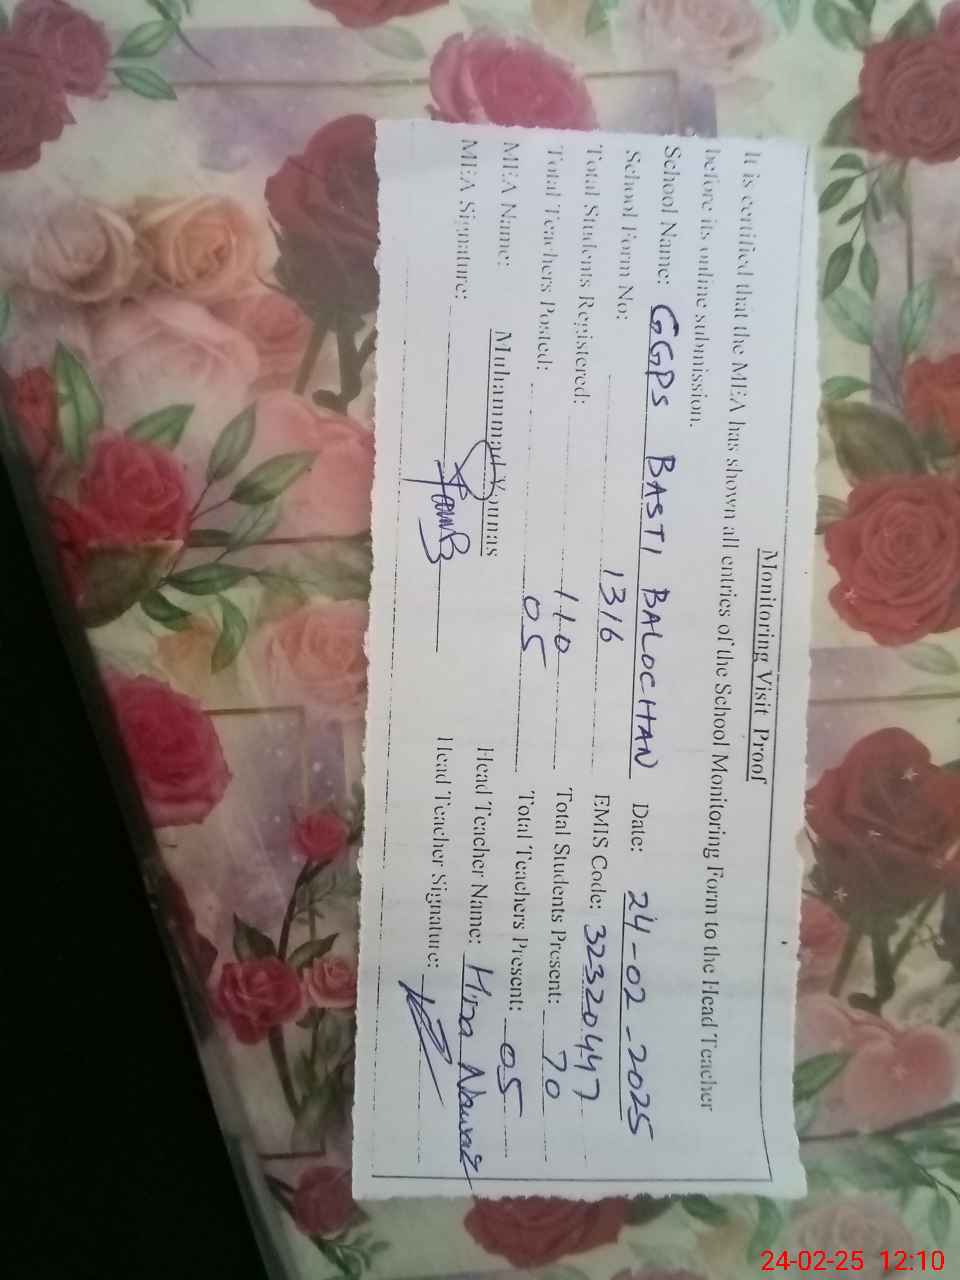 Monitoring Visit Proof
It is certified that the MEA has shown all entries of the School Monitoring Form to the Head Teacher
before its online submission.
School Name: GGPS BASTI BALOCHAN Date: 24-02-2025
School Form No: 1316 EMIS Code: 32320447
Total Students Registered: 110 Total Students Present: 70
Total Teachers Posted: 05 Total Teachers Present: 05
MEA Name: Muhammad Younas Head Teacher Name: Hina Nawaz
MEA Signature: Head Teacher Signature:
24-02-25 12:10